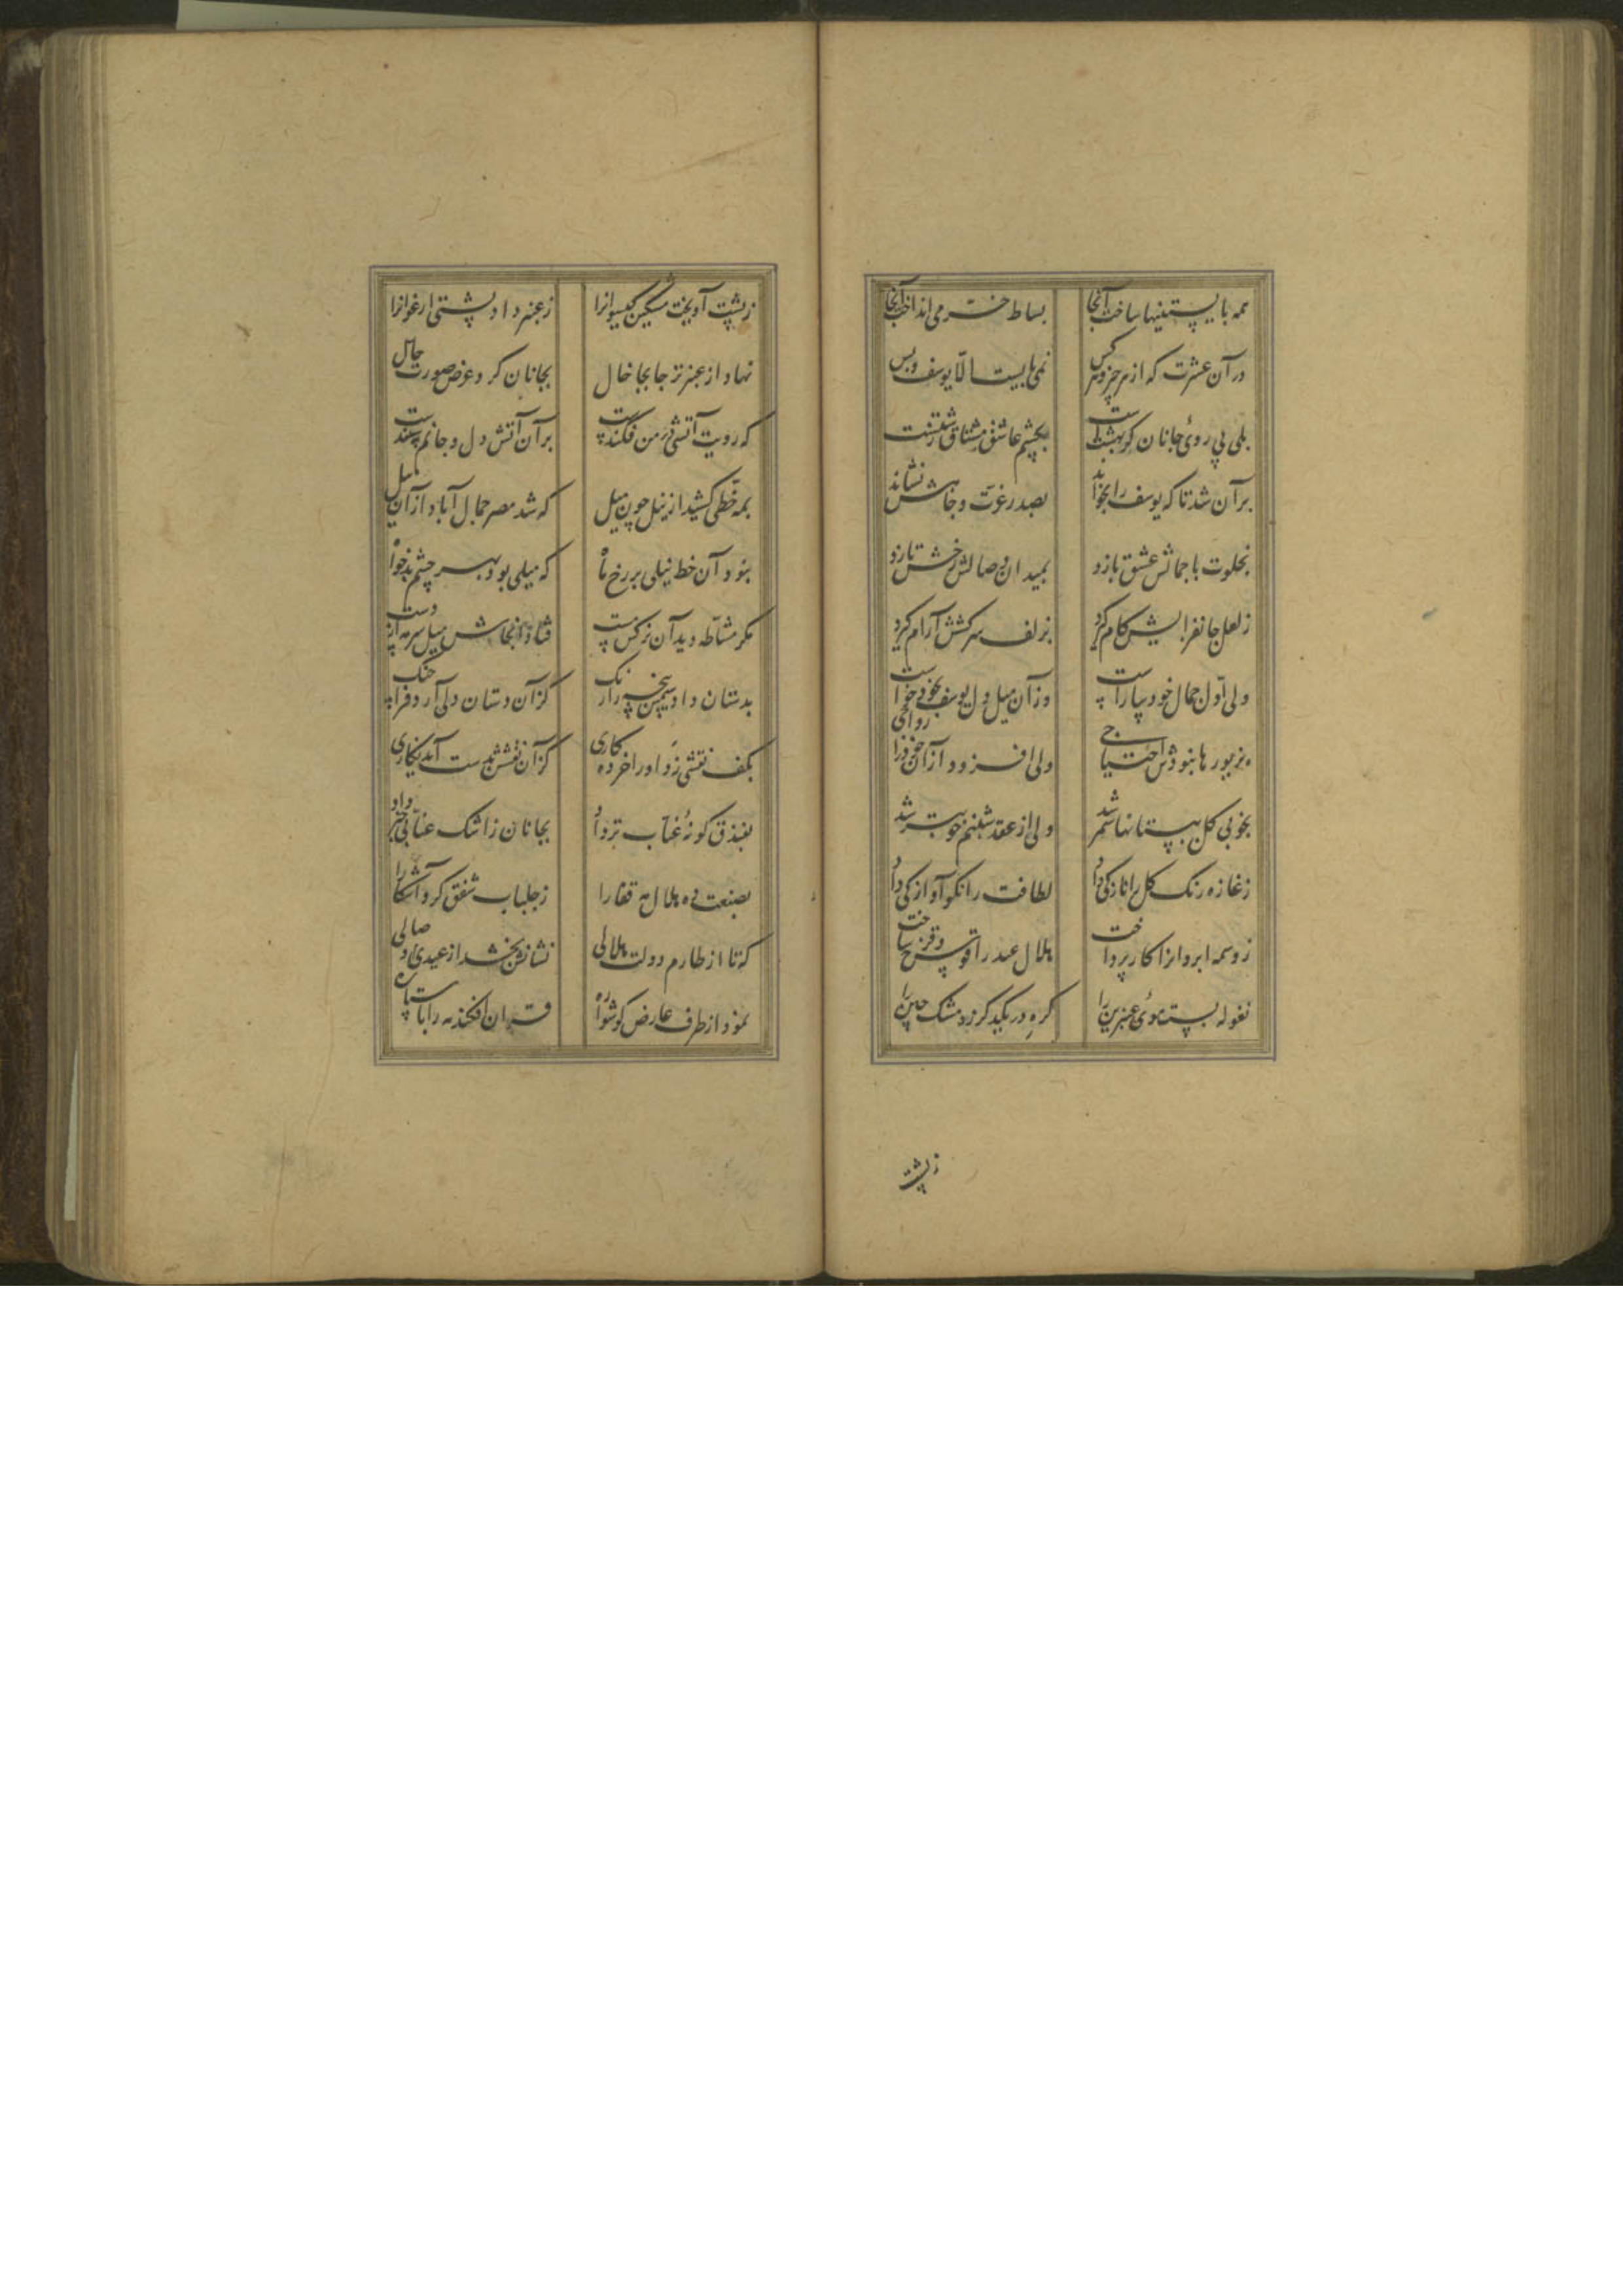 همه بایستنیها ساخت آنجا بساط خرمی انداخت آنجا
در آن عشرت که از هر چیز و هر کس نمی‌بایست الا یوسف و بس
بلی بی روی جانان گر بهشتست بچشم عاشق مشتاق زشتست
بر آن شد تا که یوسف را بخواند بصدر عزت و جاهش نشاند
بخلوت با جمالش عشق بازد بمیدان وصالش رخش تازد
ز لعل جانفزایش کام گیرد بزلف سرکشش آرام گیرد
ولی اول جمال خود بیاراست وز آن میل دل یوسف بخود خواست
بزیورها نبودش احتیاجی ولی افزود از آن خود را رواجی
بخوبی گل ببستانها سمر شد ولی از عقد شبنم خوبتر شد
ز غازه رنگ گل را تازگی داد لطافت را نکو آوازگی داد
ز وسمه ابروانرا کار پرداخت هلال عید را قوس قزح ساخت
نغوله بست موی عنبرین را گره در یکدگر زد مشک چین را
ز پشت
ز پشت آویخت مشکین گیسوانرا ز عنبر داد پشتی ارغوانرا
نهاد از عنبر تر جا بجا خال بجانان کرد عرض صورت حال
که رویت آتشی در من فکندست بر آن آتش دل و جانم سپندست
بمه خطی کشید از نیل چون میل که شد مصر جمال آباد از آن نیل
نبود آن خط نیلی بر رخ ماه که میلی بود بهر چشم بدخواه
مگر مشاطه دید آن نرگس مست فتاد آنجاش میل سرمه از دست
بدستان داد سیمین پنجه را رنگ کز آن دستان دلی آرد فرا چنگ
بکف نقشی زد او را خرده کاری کز آن نقشش بدست آمد نگاری
بفندق گونه عناب تر داد بجانان ز اشک عنابی خبر داد
ز جلباب شفق کرد آشکارا
که تا از طارم دولت هلالی نشانش بخشد از عید وصالی
نمود از طرف عارض گوشواره قران افکند مه را با ستاره